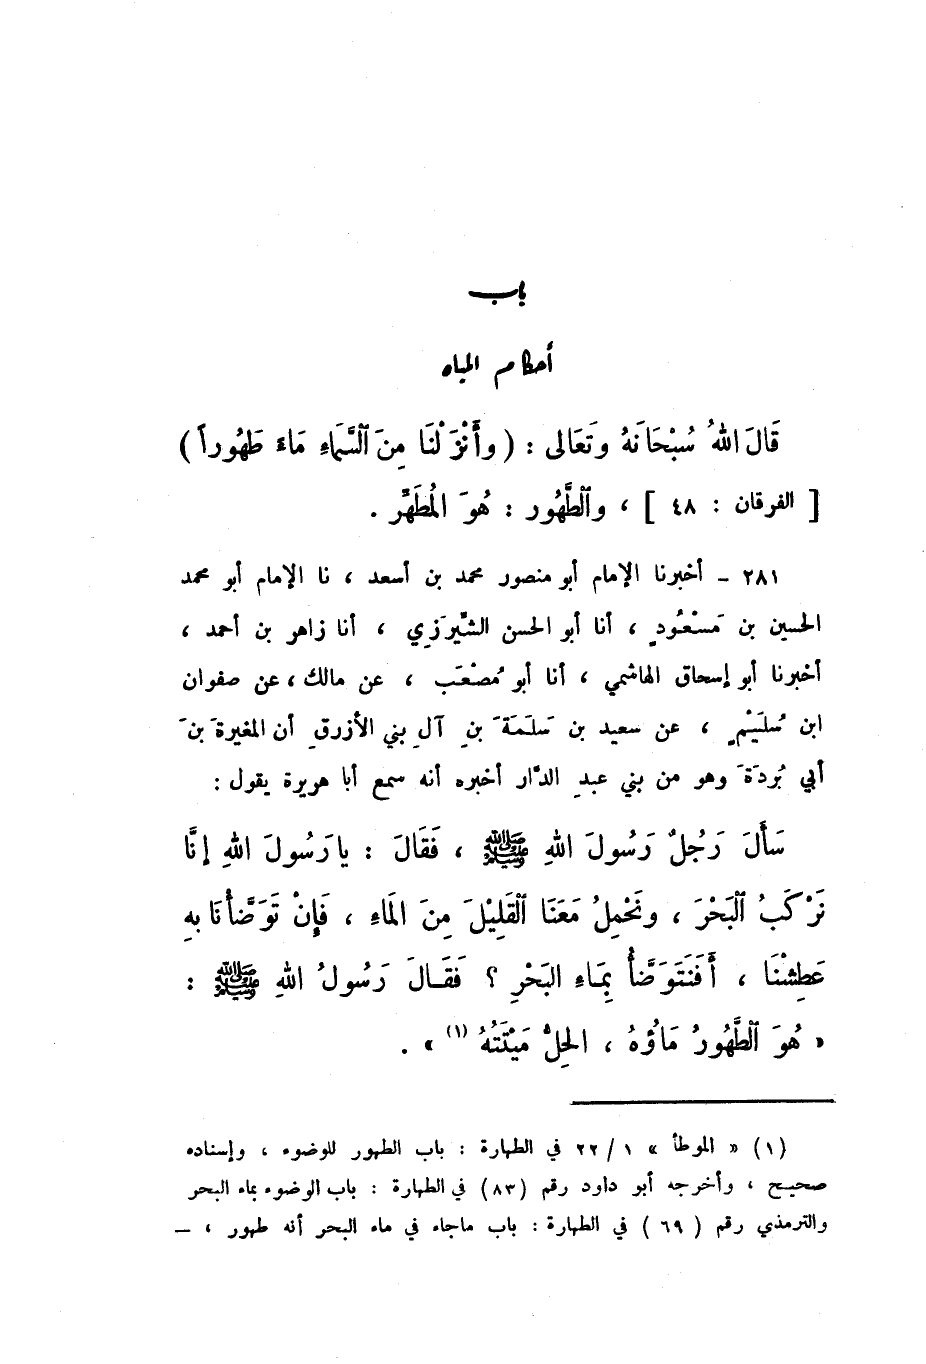 باب
أحكام المياه
قَالَ اللهُ سُبْحَانَهُ وتَعَالى : ( وأَنْزَلْنَا مِنَ ٱلسَّمَاءِ مَاءَ طَهُوراً )
[ الفرقان : ٤٨ ] ، وٱلطَّهُور : هُوَ المُطَهِّر .
٢٨١ - أخبرنا الإمام أبو منصور محمد بن أسعد ، نا الإمام أبو محمد
الحسين بن مَسْعُودٍ ، أنا أبو الحسن الشِّيرَزِي ، أنا زاهر بن أحمد ،
أخبرنا أبو إسحاق الهاشمي ، أنا أبو مُصْعَب ، عن مالك ، عن صفوان
ابن سُلَيْمٍ ، عن سعيد بن سَلَمَةَ بنِ آلِ بني الأزرقِ أن المغيرةَ بنَ
أبي بُردَةَ وهو من بني عبدِ الدَّار أخبره أنه سمع أبا هريرة يقول :
سَأَلَ رَجُلٌ رَسُولَ اللهِ ﷺ ، فَقَالَ : يا رَسُولَ اللهِ إنَّا
نَرْكَبُ ٱلبَحْرَ ، ونَحْمِلُ مَعَنَا ٱلقَلِيْلَ مِنَ المَاءِ ، فَإِنْ تَوَضَّأنَا بهِ
عَطِشْنَا ، أَفَنَتَوَضَّأُ بِمَاءِ البَحْرِ ؟ فَقَالَ رَسُولُ اللهِ ﷺ :
« هُوَ ٱلطَّهُورُ مَاؤُهُ ، الحِلُّ مَيْتَتُهُ (١) » .
(١) « الموطأ » ١ / ٢٢ في الطهارة : باب الطهور للوضوء ، وإسناده
صحيح ، وأخرجه أبو داود رقم (٨٣) في الطهارة : باب الوضوء بماء البحر
والترمذي رقم ( ٦٩ ) في الطهارة : باب ماجاء في ماء البحر أنه طهور ، -